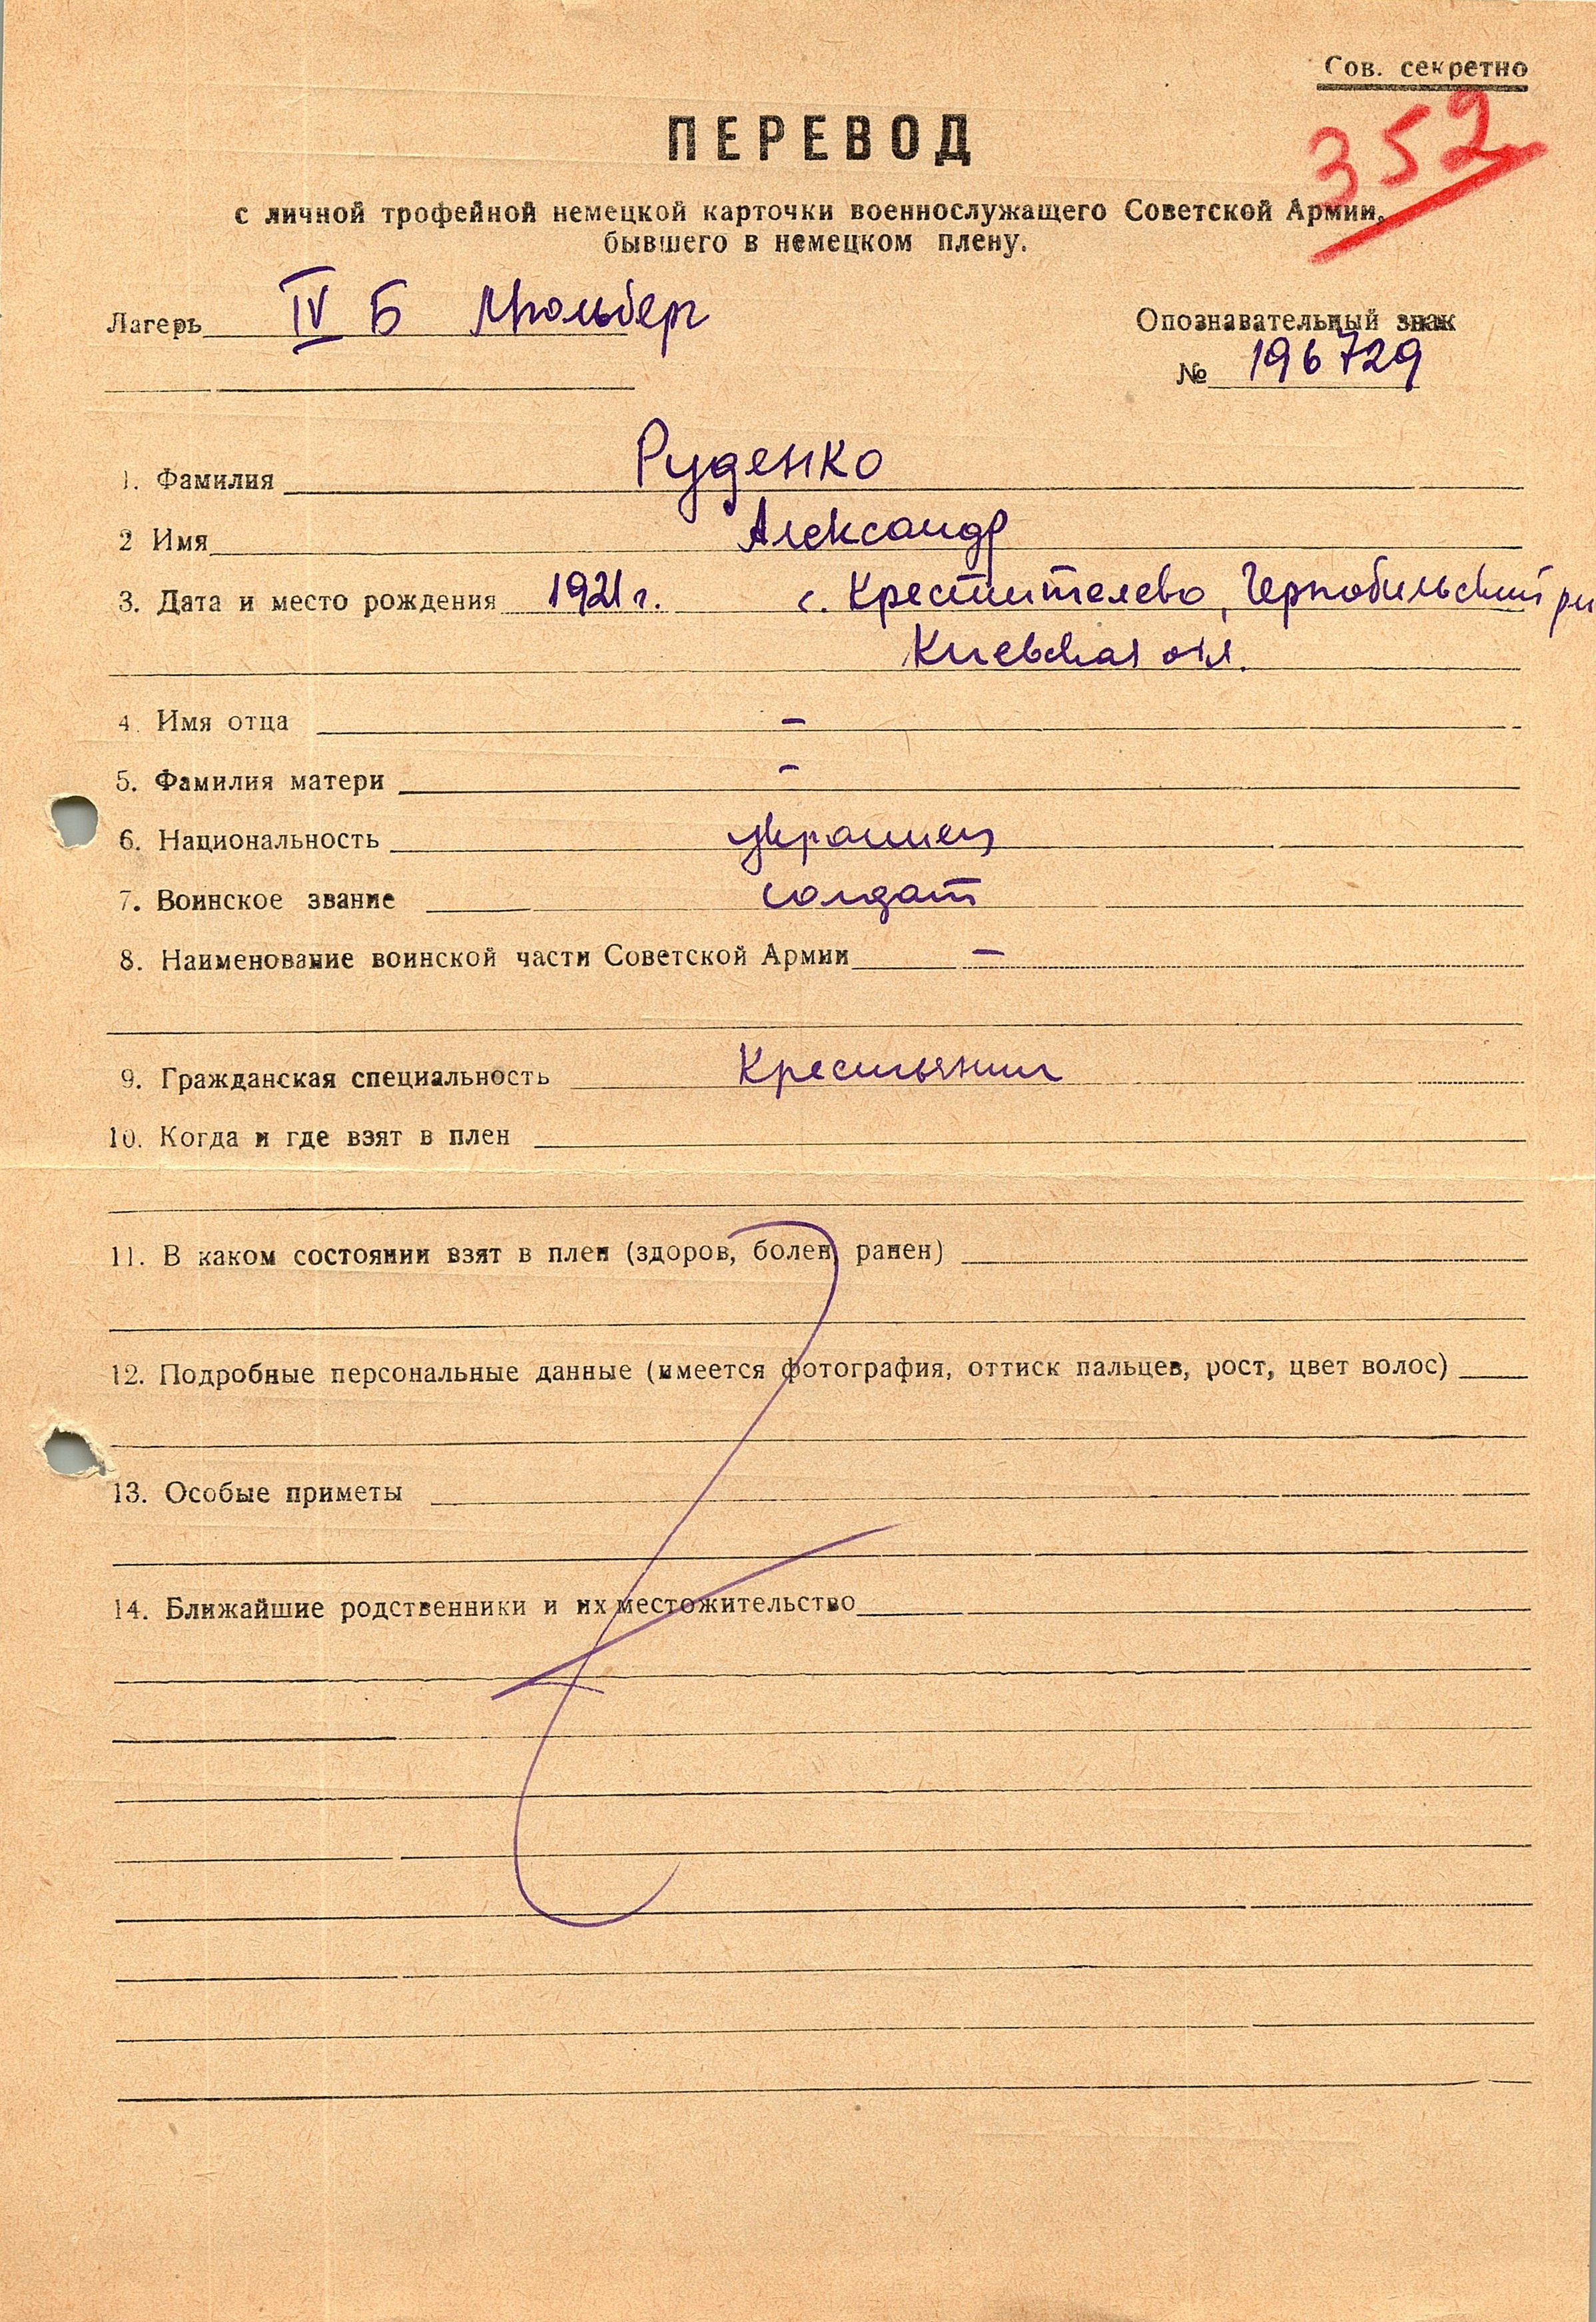 Сов. секретно
352
ПЕРЕВОД
с личной трофейной немецкой карточки военнослужащего Советской Армии,
бывшего в немецком плену.
Лагерь IV Б Мюльберг
Опознавательный знак
№ 196729
1. Фамилия Руденко
2 Имя Александр
3. Дата и место рождения 1921 г. с. Крестителево, Чернобильский
Киевская обл.
4. Имя отца –
5. Фамилия матери –
6. Национальность украинец
7. Воинское звание солдат
8. Наименование воинской части Советской Армии –
9. Гражданская специальность Крестьянин
10. Когда и где взят в плен
11. В каком состоянии взят в плен (здоров, болен, ранен)
12. Подробные персональные данные (имеется фотография, оттиск пальцев, рост, цвет волос)
13. Особые приметы
14. Ближайшие родственники и их местожительство